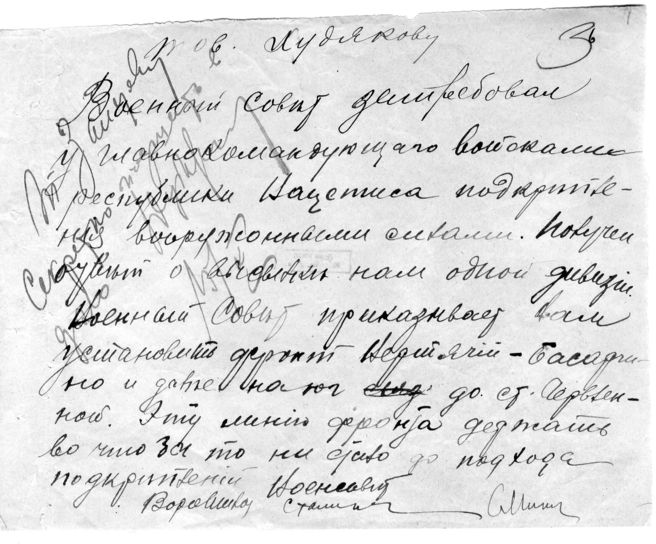 тов. Худякову
3
Военный совет затребовал
у главнокомандующаго войсками
республики Вацетиса подкрепле-
ния вооруженными силами. Получен
ответ о высылке нам одной дивизии.
Военный Совет приказывает вам
установить фронт Нертячій – Басарги-
но и далее на юг до ст. Червлен-
ной. Эту линію фронта держать
во что за то ни стало до подхода
подкреплений Военсовет
Ворошилов Сталин С. Минин
Секретно